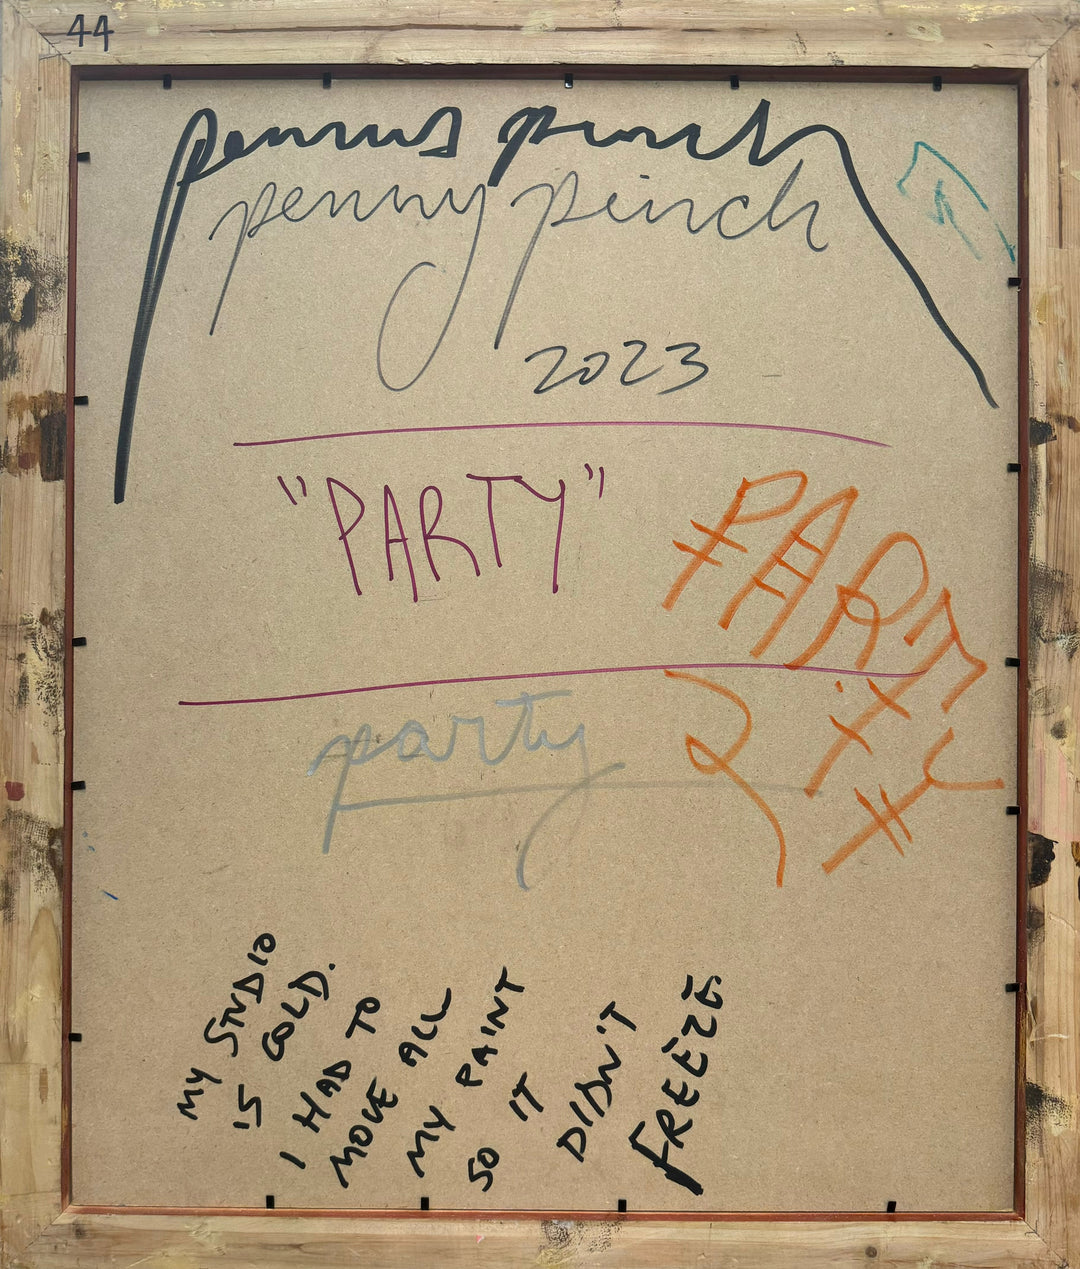 44
pennys pinch
penny pinch
2023
"PARTY"
PARTY
party
MY STUDIO
IS COLD.
I HAD TO
MOVE ALL
MY PAINT
SO IT
DIDN'T
FREEZE